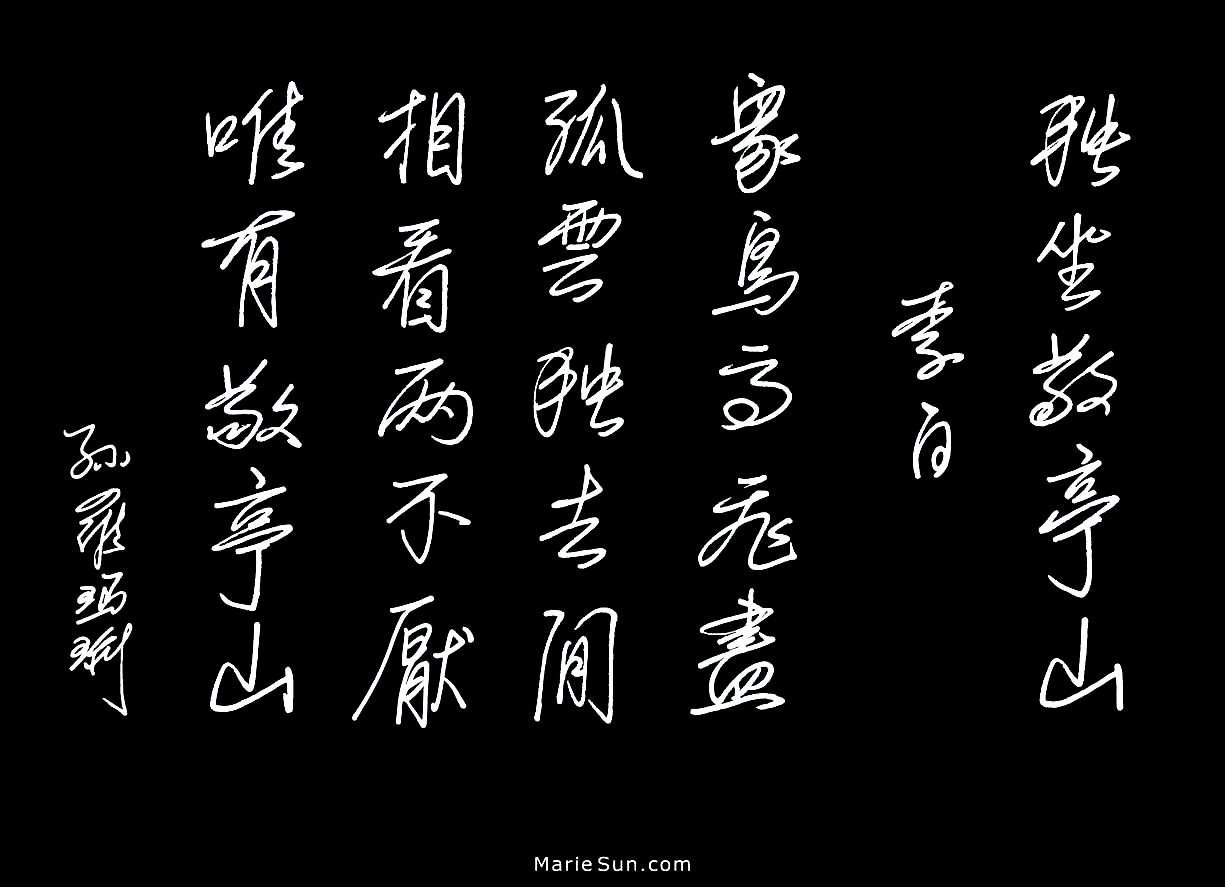 獨坐敬亭山
李白
眾鳥高飛盡
孤雲獨去閒
相看兩不厭
唯有敬亭山
孫羅瑪琍
MarieSun.com